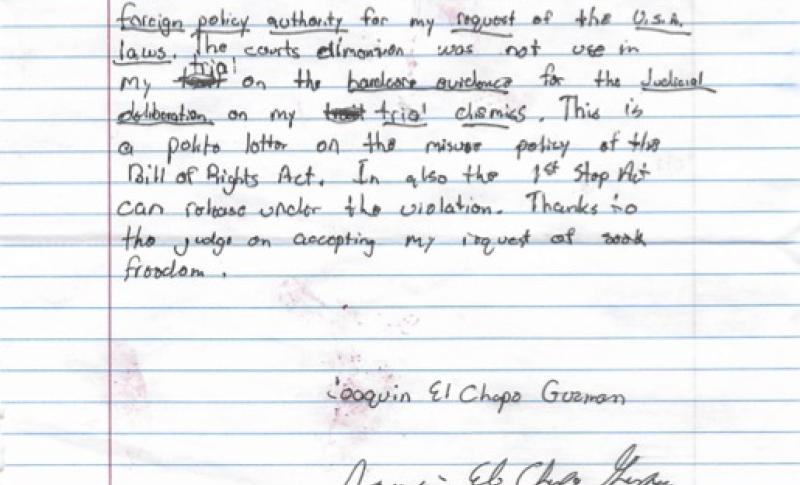 foreign policy authority for my request of the U.S.A.
laws. The courts elimonion was not use in
my trial on the hardcore evidence for the Judicial
deliberation on my trial dismiss. This is
a polite lotter on the misuse policy of the
Bill of Rights Act. In also the 1st Stop Act
can release under the violation. Thanks to
the judge on accepting my request of
freedom.
Joaquin El Chapo Guzman
El Chapo